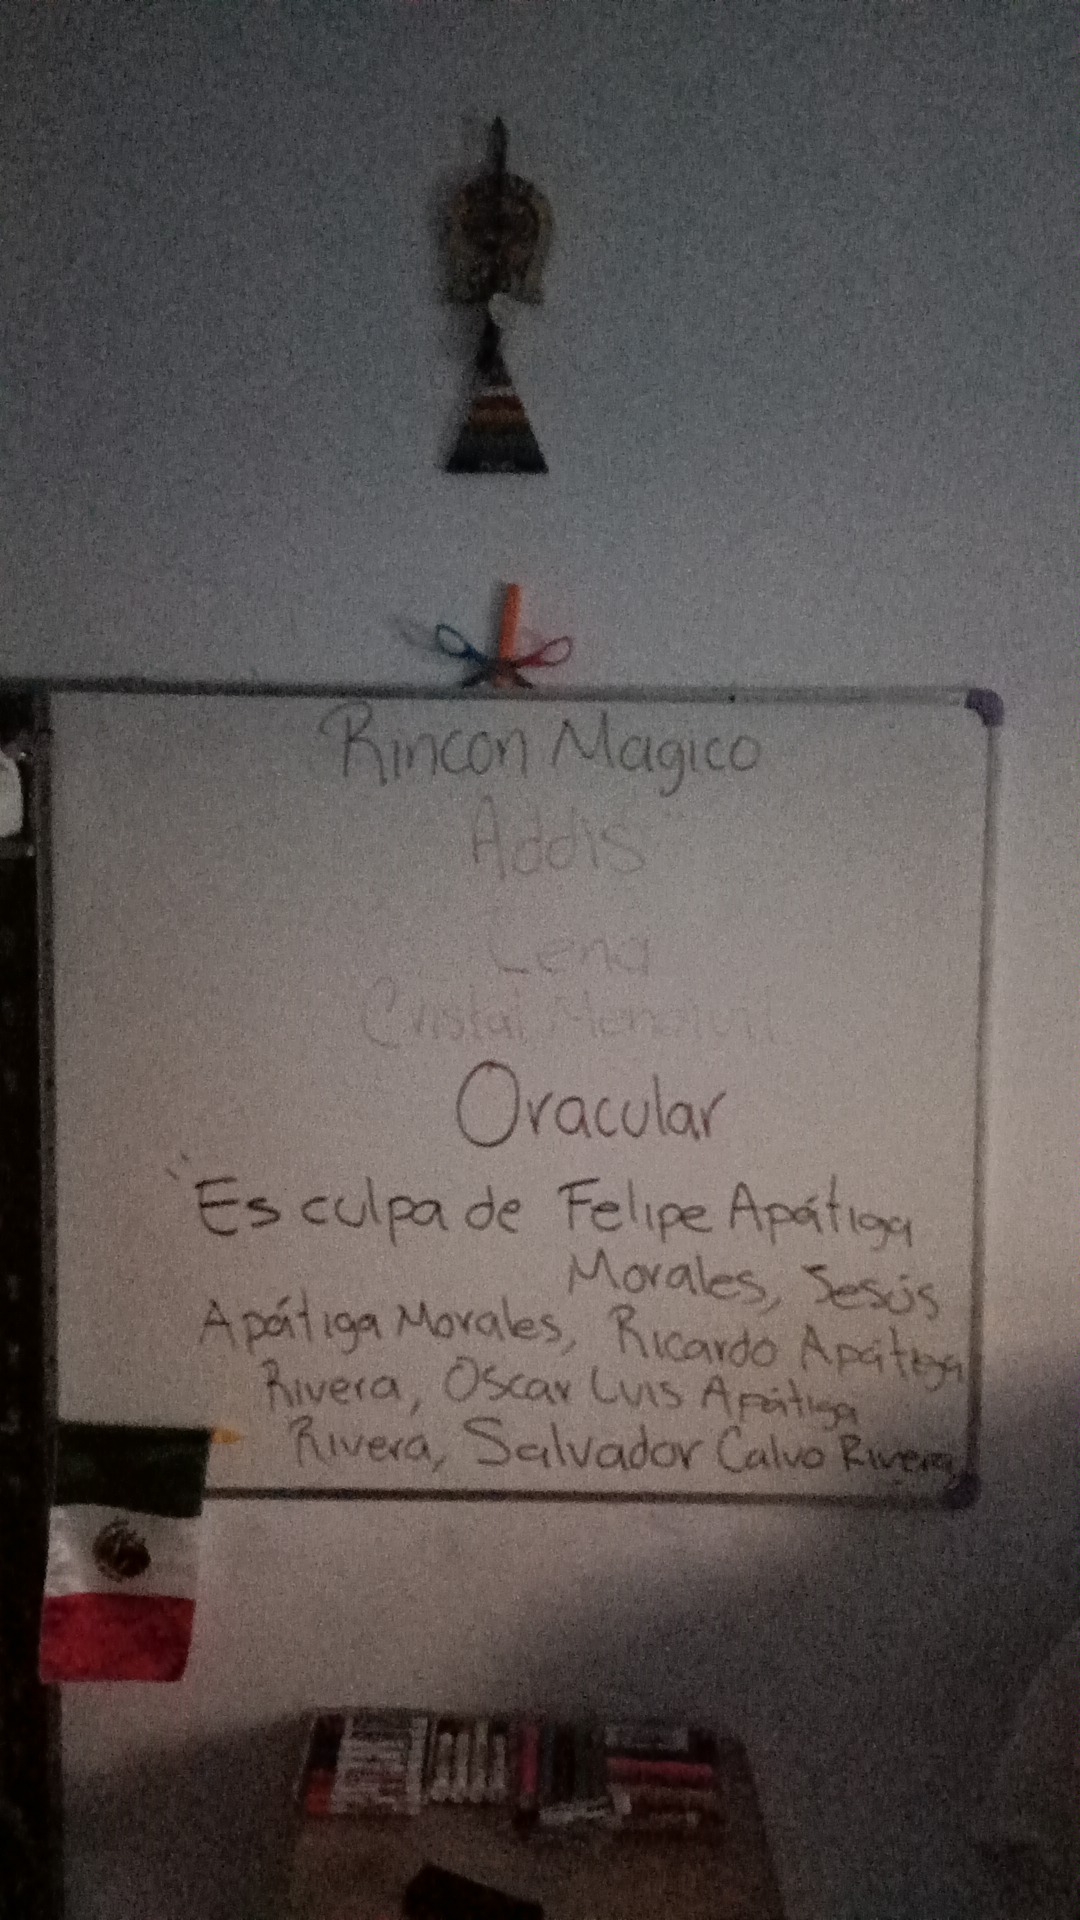 Rincon Magico
Addis
Lena
Cristal
Oracular
"Es culpa de Felipe Apátiga
Morales, Jesús
Apátiga Morales, Ricardo Apátiga
Rivera, Oscar Luis Apátiga
Rivera, Salvador Calvo Rivera,